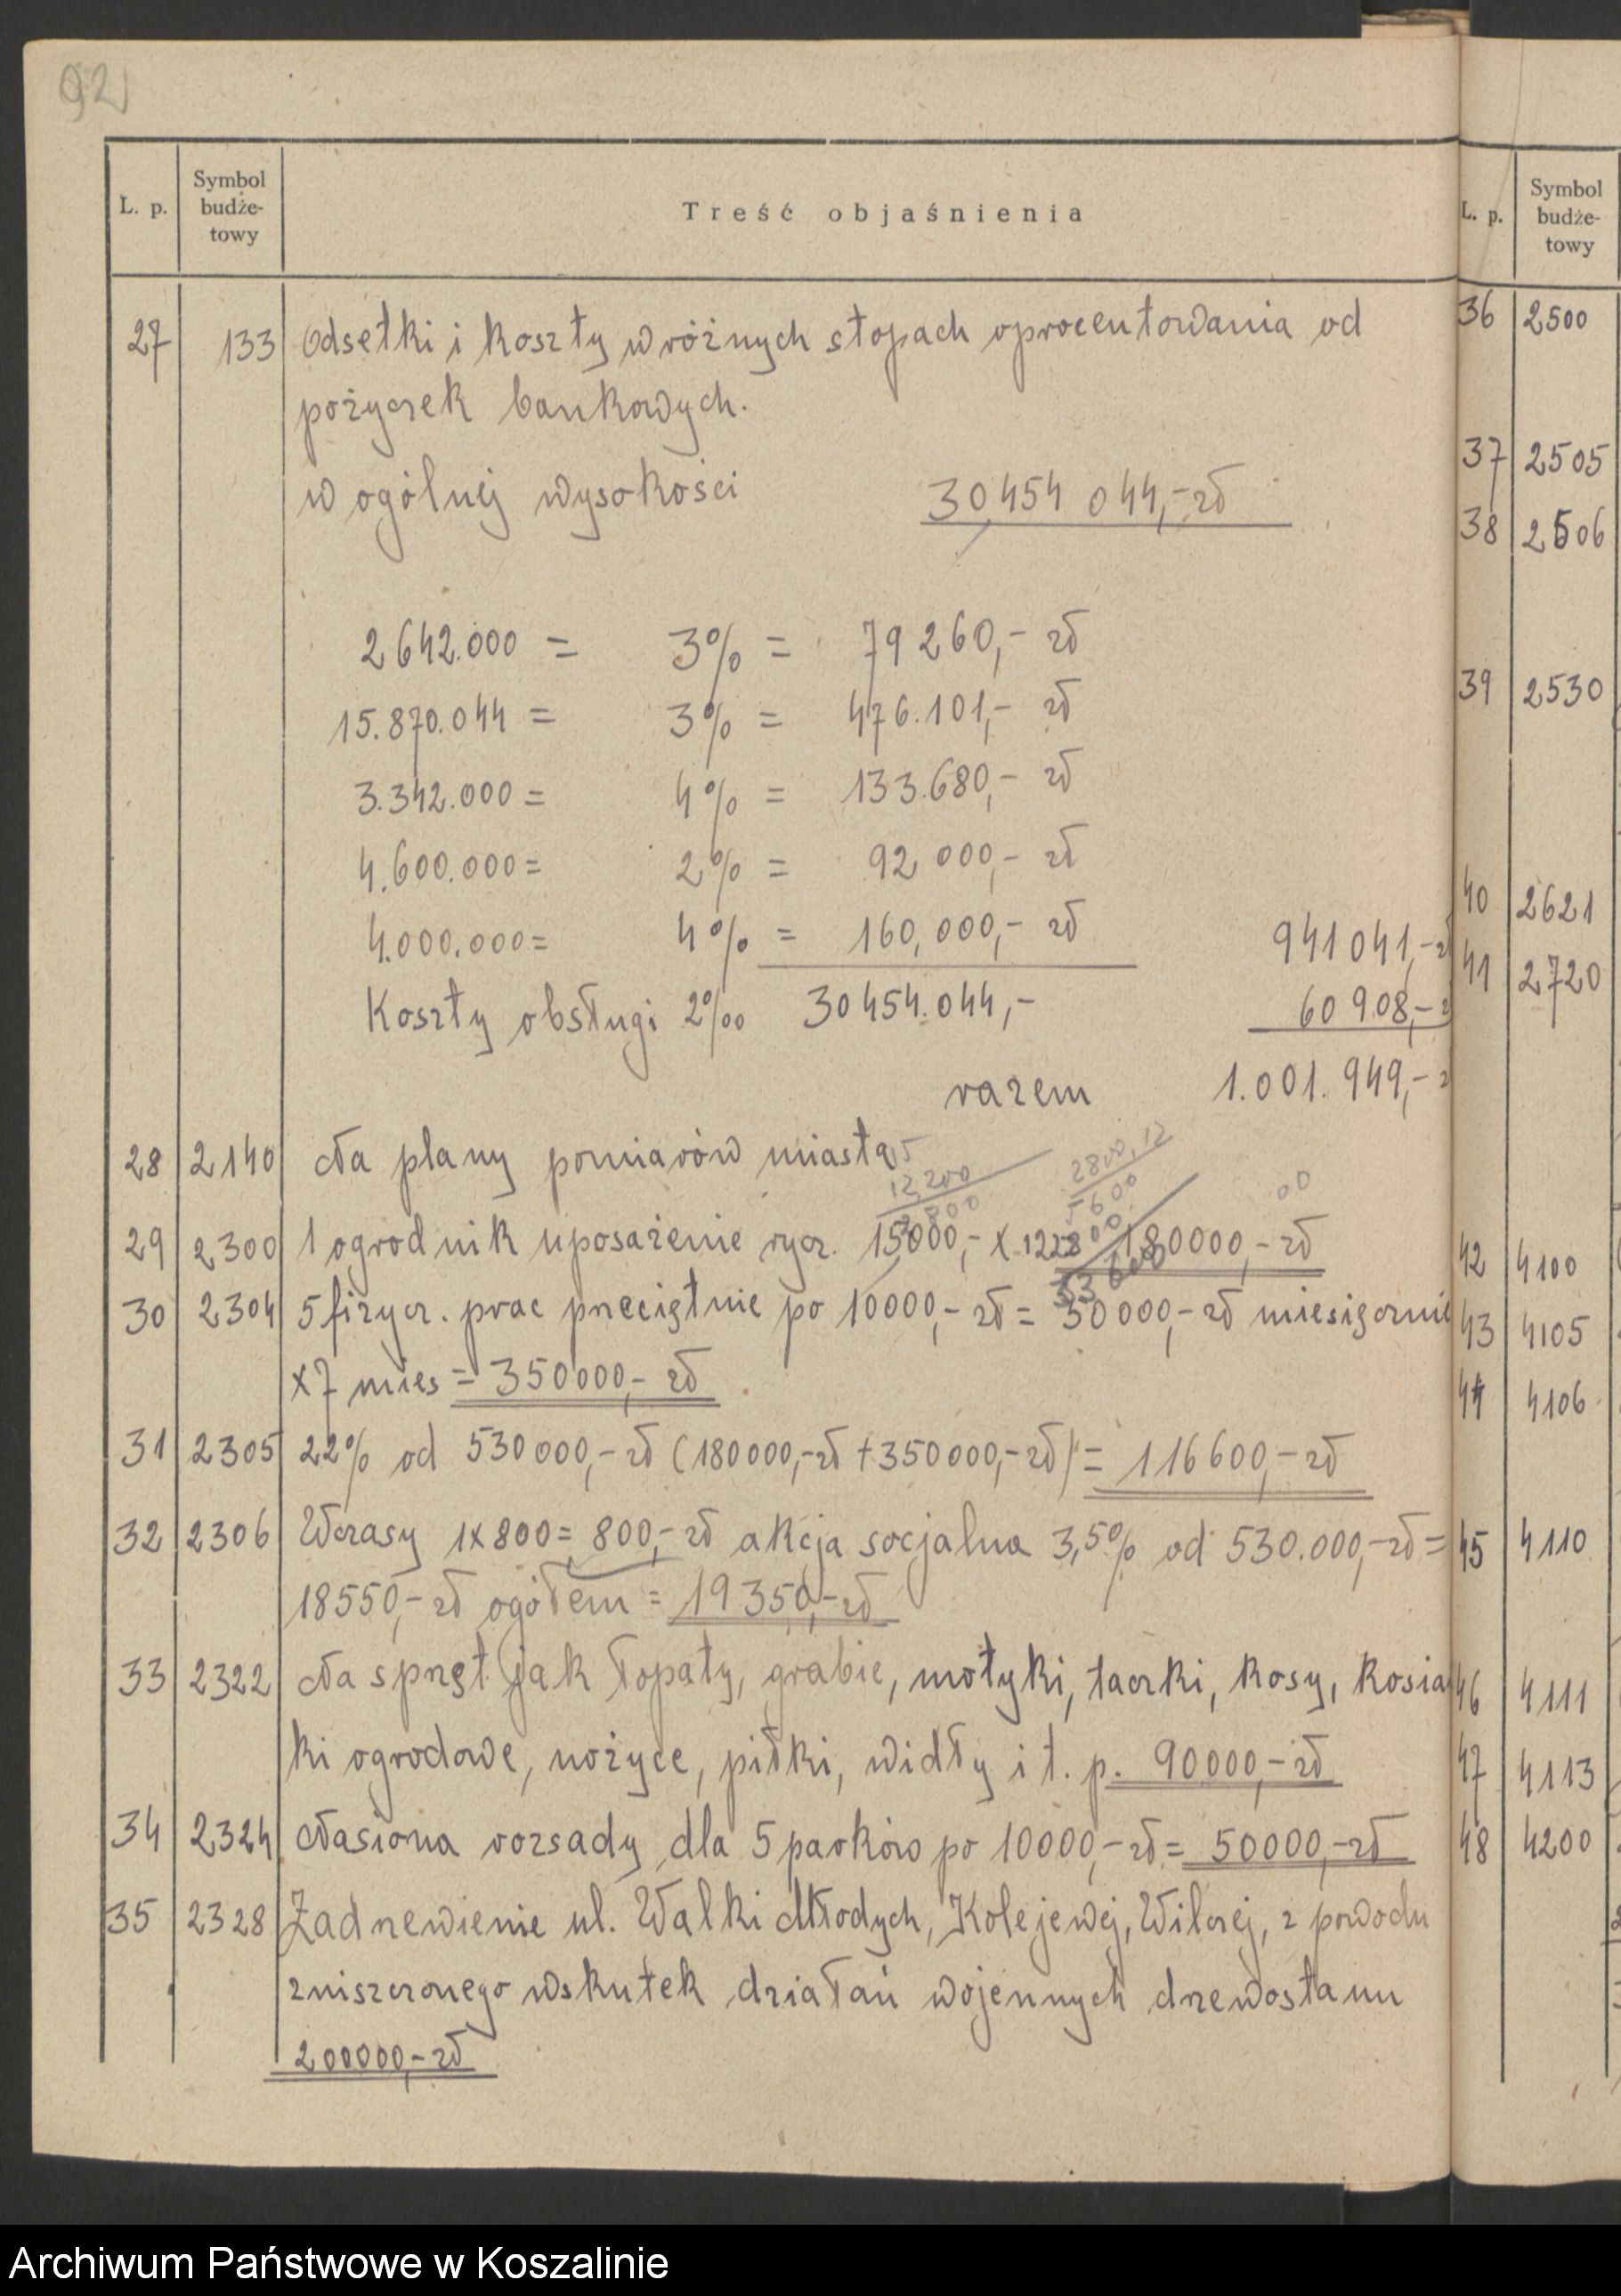 92
L. p. Symbol budże- towy Treść objaśnienia
27 133 Odsetki i koszty w różnych stopach oprocentowania od
pożyczek bankowych.
w ogólnej wysokości 30454 044,- zł
2642.000 = 3% = 79260,- zł
15.870.044 = 3% = 476.101,- zł
3.342.000 = 4% = 133.680,- zł
4.600.000 = 2% = 92,000,- zł
4.000.000 = 4% = 160,000,- zł 941041,-
Koszty obsługi 2‰ 30454.044,- 60908,-
razem 1.001.949,-
28 2140 Na plany pomiarów miasta
12,200
2800
2800,12
5600
00
29 2300 1 ogrodnik uposażenie rycz. 15000,- x 12 180000,- zł
33600
30 2304 5 fizycz. prac przeciętnie po 10000,- zł = 50000,- zł miesięcznie
x 7 mies = 350000,- zł
31 2305 22% od 530000,- zł (180000,- zł + 350000,- zł) = 116600,- zł
32 2306 Wczasy 1x800 = 800,- zł akcja socjalna 3,5% od 530.000,- zł =
18550,- zł ogółem = 19350,- zł
33 2322 Na sprzęt jak łopaty, grabie, motyki, taczki, kosy, kosia
ki ogrodowe, nożyce, piłki, widły i t. p. 90000,- zł
34 2324 Nasiona rozsady dla 5 parków po 10000,- zł = 50000,- zł
35 2328 Zadrzewienie ul. Walki Młodych, Kolejewej, Wilczej, z powodu
zniszczonego wskutek działań wojennych drzewostanu
200000,- zł
L. p. Symbol budże- towy
36 2500
37 2505
38 2506
39 2530
40 2621
41 2720
42 4100
43 4105
44 4106
45 4110
46 4111
47 4113
48 4200
Archiwum Państwowe w Koszalinie